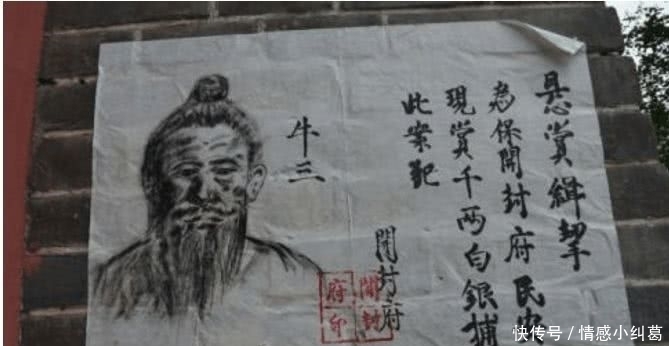 悬賞緝拏
為保開封府民
現賞千両白銀捕
此案犯
開封府
開封
府印
牛三
快传号 / 情感小纠葛